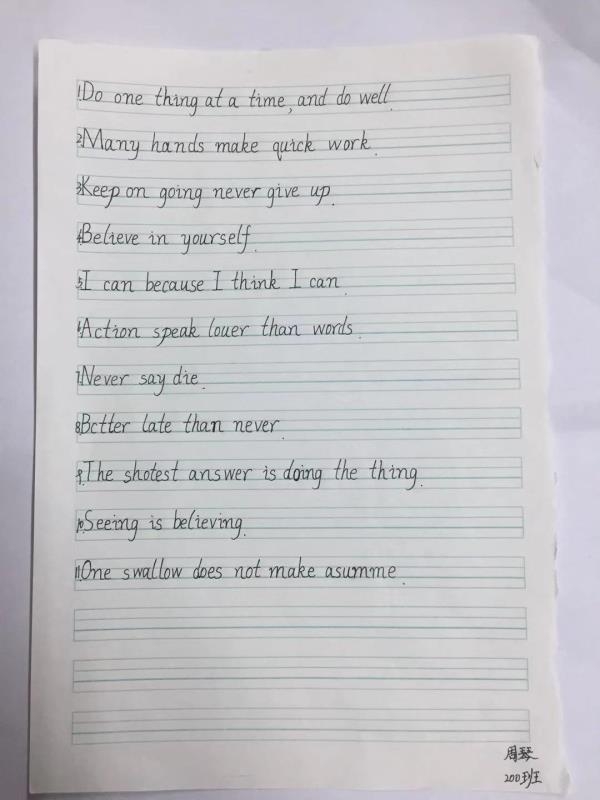 1.Do one thing at a time, and do well.
2.Many hands make quick work.
3.Keep on going never give up.
4.Believe in yourself.
5.I can because I think I can.
6.Action speak louer than words.
7.Never say die.
8.Bctter late than never.
9.The shotest answer is doing the thing.
10.Seeing is believing.
11.One swallow does not make asumme.
周琴
200班